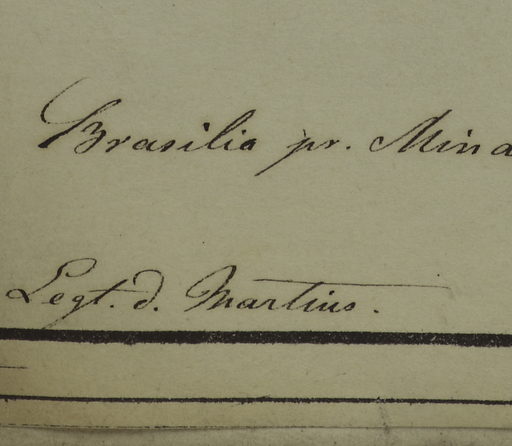 Brasilia pr. Mina
Legt. d. Martius.